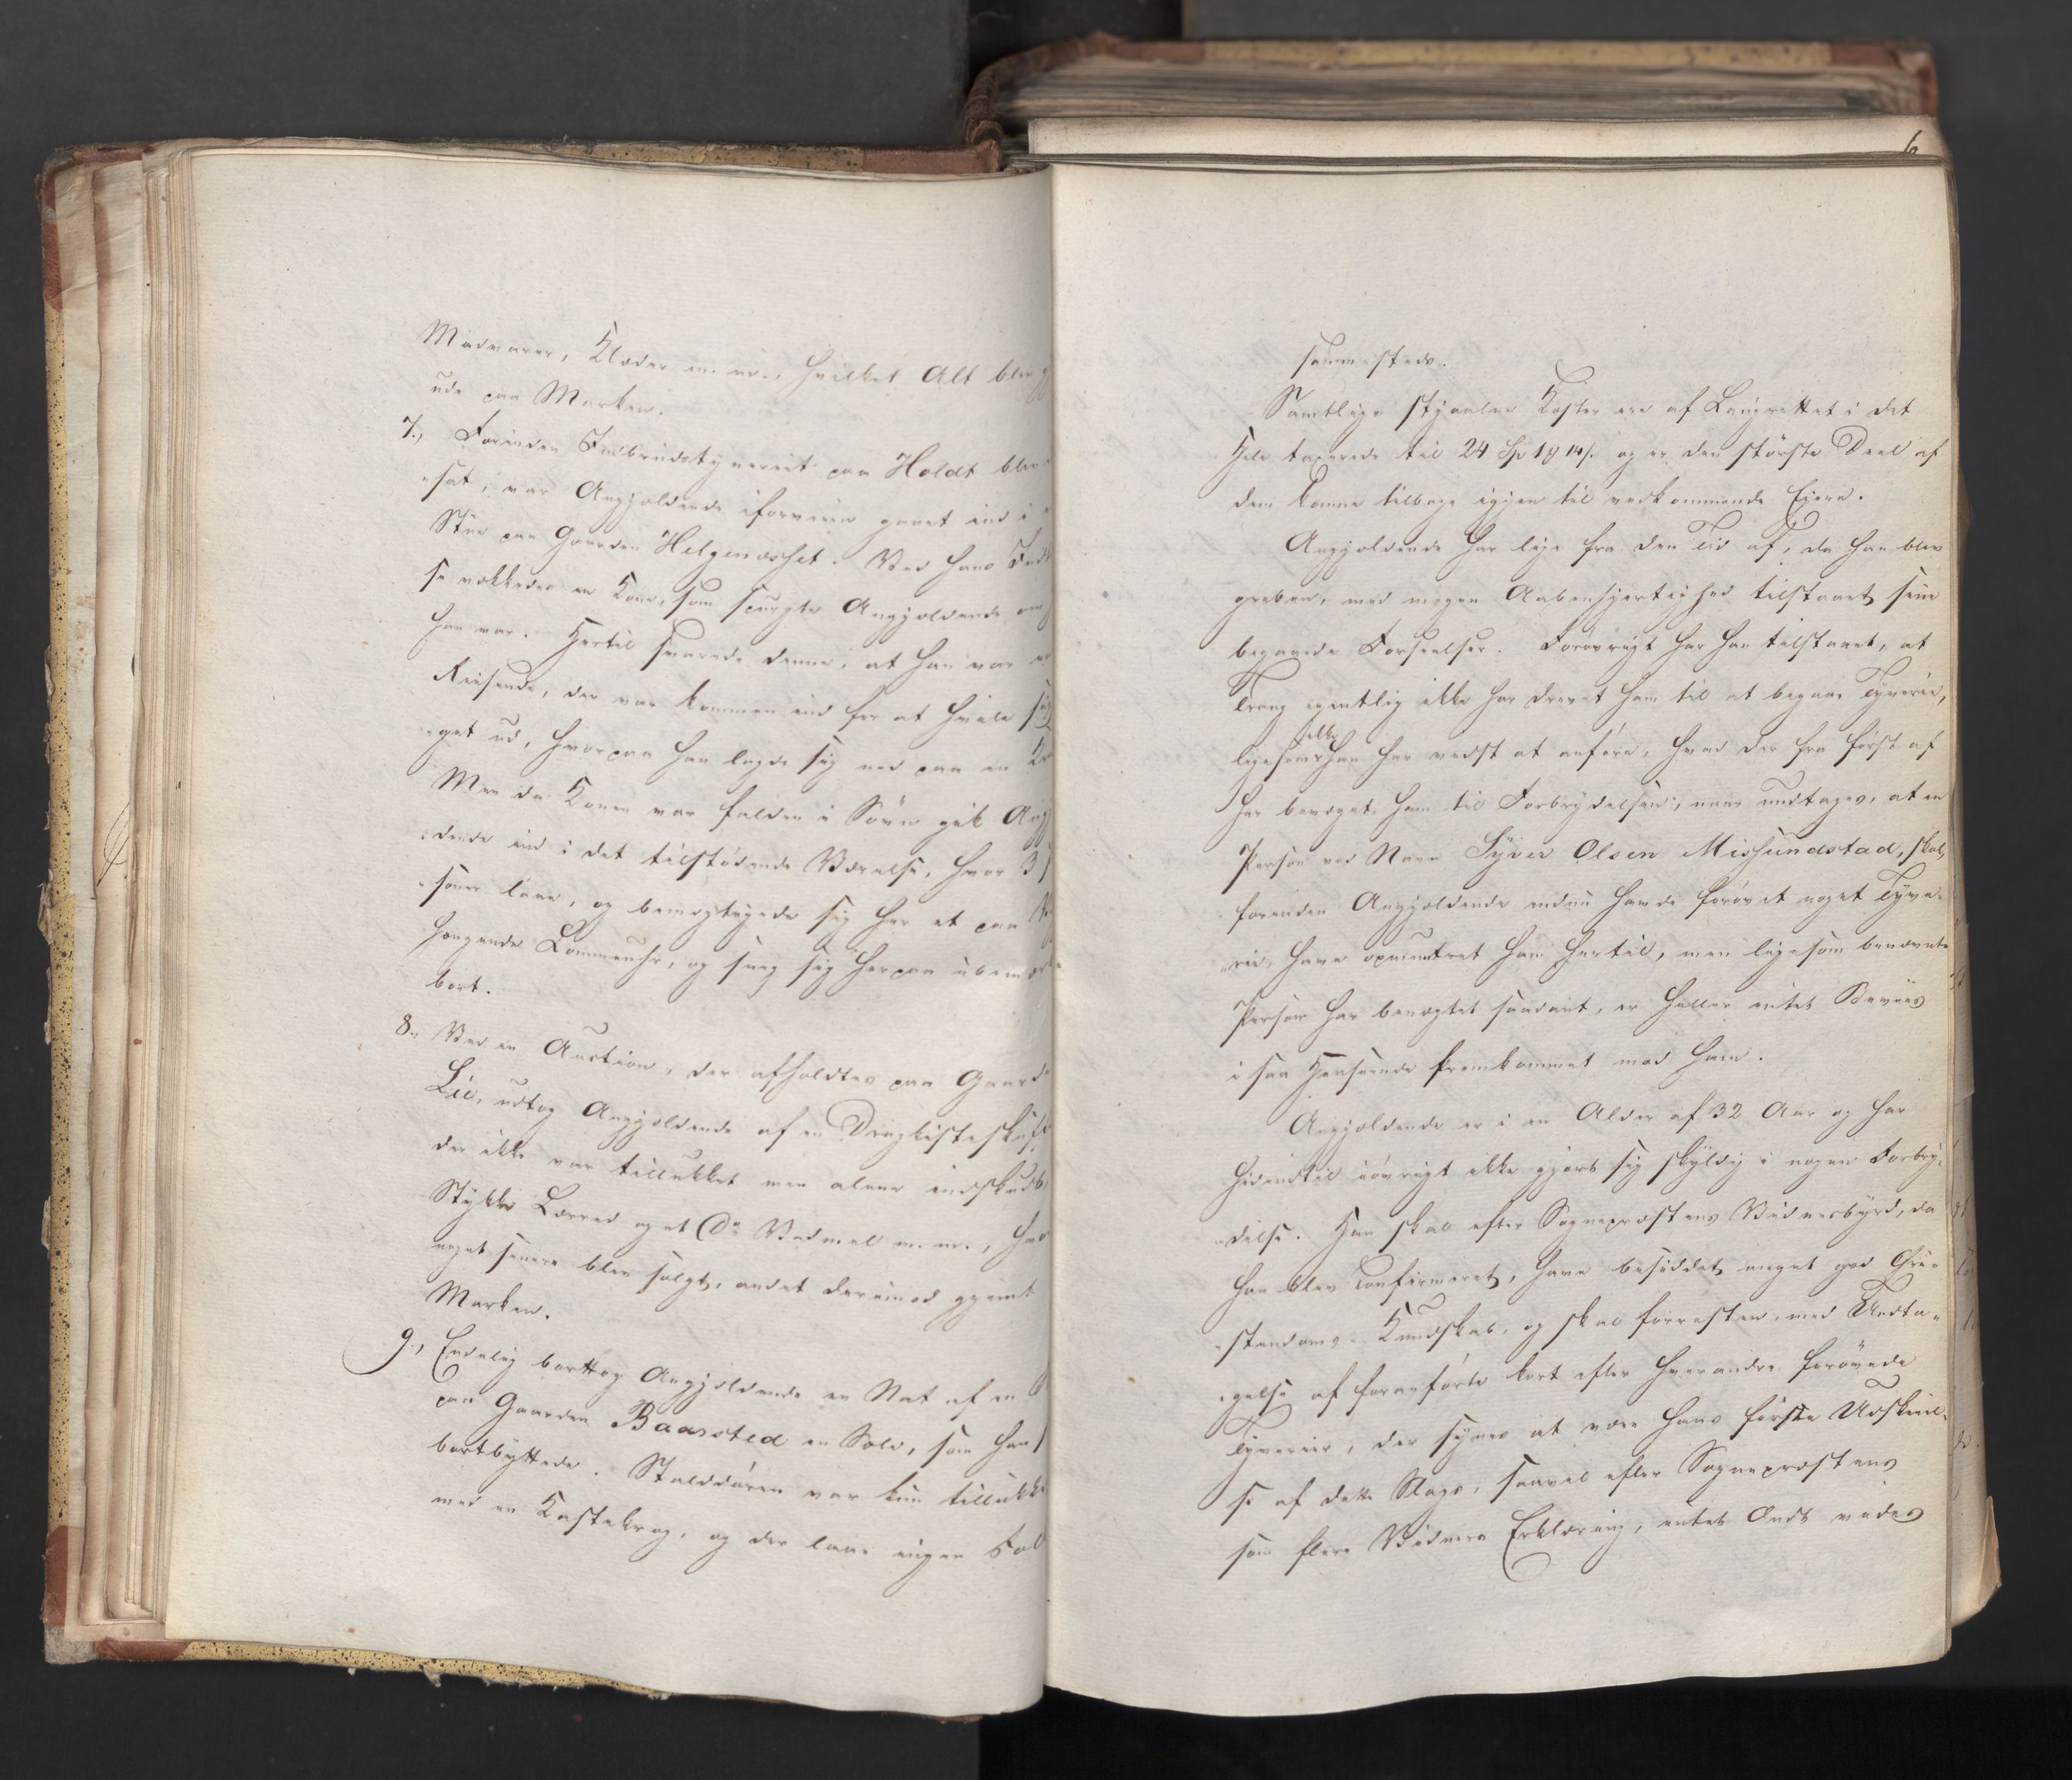 Madvarer, Klæder m. m., hvilket Alt blev
ude paa Marken.
7., Forinden Indbrudstyveriet paa Holdt blev
"sat, var Angjældende iforveien gaaet ind i
Stue paa Gaarden Helgenæshet. Ved hans Ind
se vækkedes en Kone, som spurgte Angjældende om
han var. Hertil svarede denne, at han var en
Reisende, der var kommen ind for at hvile sig
"get ud, hvorpaa han lagde sig ned paa en
Men da Konen var falden i Søvn gik Ang
"dende ind i det tilstødende Værelse, hvor 3
"soner laae, og bemægtigede sig her et paa
hængende Lommeuhr, og sneg sig herpaa ubemær
bort.
8., Ved en Auction, der afholdtes paa Gaard
Lie, udtog Angjældende af en Dragkisteskuffe
der ikke var tillukket men alene indskudt,
Stykke Lærred og et Do Vadmel m. m., hvo
noget senere blev solgt, andet derimod gjemt
Marken.
9., Endelig borttog Angjældende en Nat af en
paa Gaarden Baarsted en Sæle, som han
bortbyttede. Stalddøren var kun tillukke
med en Kastekrog, og der laae ingen Fol
6
sammesteds.
Samtlige stjaalne Koster ere af Laugrettet i det
Hele taxerede til 24 Sp 1 14 s. og er den største Deel af
dem komne tilbage igjen til vedkommende Eiere.
Angjældende har lige fra den Tid af, da han blev
greben, med megen Aabenhjertighed tilstaaet sine
begaaede Forseelser. Forøvrigt har han tilstaaet, at
Trang egentlig ikke har drevet ham til at begaae Tyverie,
ligesom ikke han har vidst at anføre, hvad der fra først af
har bevæget ham til Forbrydelsen, naar undtages, at en
Person ved Navn Syver Olsen Missundstad, skal,
forinden Angjældende endnu havde forøvet noget Tyve"
"rie, have opmuntret ham hertil, men ligesom benævnte
Person har benægtet saadant, er heller intet Beviis
i saa Henseende fremkommet mod ham.
Angjældende er i en Alder af 32 Aar og har
hidindtil iøvrigt ikke gjort sig skyldig i nogen Forbry"
"delse. Han skal efter Sognepræstens Vidnesbyrd, da
han blev Confirmeret, have besiddet meget god Chri"
"stendoms-Kundskab, og skal forresten, med Undta"
"gelse af foranførte kort efter hverandre forøvede
Tyverier, der synes at være hans første Udskeiel"
se af dette Slags, saavel efter Sognepræstens
som flere Vidners Erklæring, intet Ondt vides